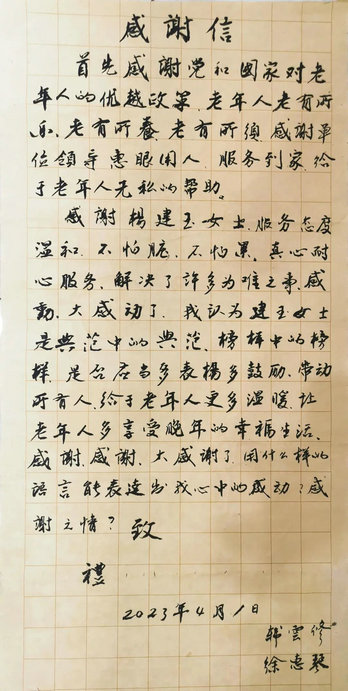 感謝信
首先感謝党和国家对老
年人的优越政策、老年人老有所
乐、老有所養、老有所須感謝单
位領导惠眼用人、服务到家、给
于老年人无私的幫助。
感謝楊建玉女士、服务态度
温和、不怕脏、不怕累、真心耐
心服务、解决了許多为难之事、感
動、大感动了、我认为建玉女士
是典范中的典范、榜样中的榜
样、是否应当多表楊多鼓励、带动
所有人、给于老年人更多温暖、让
老年人多享受晚年的幸福生活、
感謝、感謝、大感謝了、用什么样的
语言能表达出我心中的感动？感
謝之情？ 致
禮
2023年4月1日
韩雲修
徐惠琴